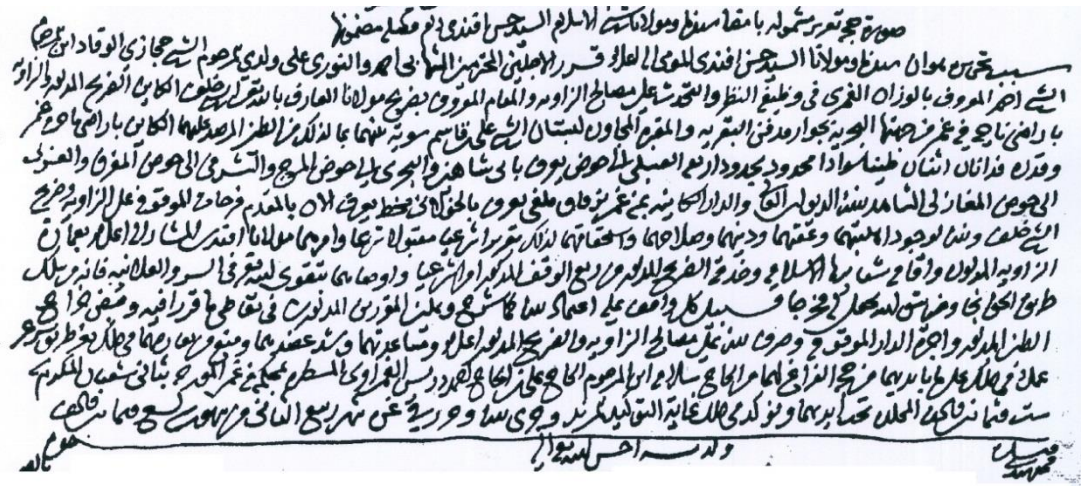 صورة حجة تقرير مشموله بامضا سيدنا ومولانا شيخ الاسلام السيد حسن افندى مضمونها
سبب تحريره هوان سيدنا ومولانا السيد حسن افندى المومى اليه اعلاه قرر الاصلين المحترمين الشهابى احمد والنورى على ولدى المرحوم الشيخ حجازى الوقاد ابن المرحوم
الشيخ احمد المعروف بالوزان الغمرى فى وظيفة النظر والتحدث على مصالح الزاويه والمقام المعروف بضريح مولانا العارف بالله تعالى خلف الكاين الضريح المذكور الزاويه
باراضى ناحية غمر من جهتها البحرية بجوار مدفن البقريه والمقبره المجاورين لبستان الشيخ على قاسم سوية بينهما بما لذلك من الطين المرصد عليهما الكاين باراضى ناحية غمر
وقدره فدانان اثنان طينا سوادا محدود بحدود اربع القبلى الى حوض يعرف بابى شاهين والبحرى الى حوض المرج والشرقى الى حوض المفرق والغربى
الى حوض المغازلى الشاهد بذلك الديوان والدار الكاينه بمنية غمر بزقاق يعرف بخط يعرف الان بالمقدم فرحات الموقوفه على الزاوية وضريح
الشيخ خلف وذلك لوجود اهليتهما وعفتهما ودينهما وصلاحهما واستحقاقهما لذلك تقريرا شرعيا مقبولا شرعا وامرهما مولانا افندى المشار اليه اعلاه بعمارة
الزاويه المذكوره واقامة شعايرها الاسلاميه وخدمة الضريح المذكور من ريع الوقف المذكور اولا شرعيا واوصاهما بتقوى الله تعالى فى السر والعلانيه فانه من يسلك
طريق الحق نجا ومن يتق الله يجعل له مخرجا وسبيل كل واقف عليه اعتماد ذلك كما شرح وتمكين المقررين المذكورين فى تعاطى ما قررا فيه وقبض خراج
الطين المذكور واجرة الدار الموقوفه وصرف ذلك على مصالح الزاويه والضريح المذكور اعلاه ومساعدتهما وشد عضدهما ومنع من يعارضهما فى ذلك بغير طريق شرعى
عملا فى ذلك على ما بايديهما من حجة الفراغ لهما من الحاج سلامه ابن المرحوم الحاج على ابن الحاج احمد دريس العمراوى المسطره بمحكمة منية غمر المذكوره بثانى شعبان المكرم سنه
ست وثمانين والف المخلده تحت ايديهما ونوكد فى ذلك غاية التوكيد المزيد وجرى ذلك وحرر فى غرة شهر ربيع الثانى من شهور سنة سبع وثمانين والف
احسن الله